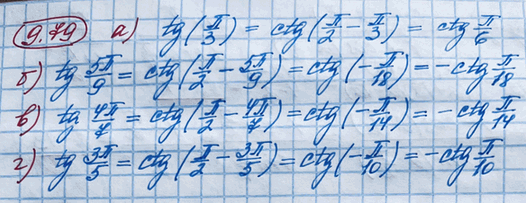 9.79 а) tg(π/3) = ctg(π/2 - π/3) = ctg π/6
б) tg 5π/9 = ctg(π/2 - 5π/9) = ctg(-π/18) = -ctg π/18
в) tg 4π/7 = ctg(π/2 - 4π/7) = ctg(-π/14) = -ctg π/14
г) tg 3π/5 = ctg(π/2 - 3π/5) = ctg(-π/10) = -ctg π/10